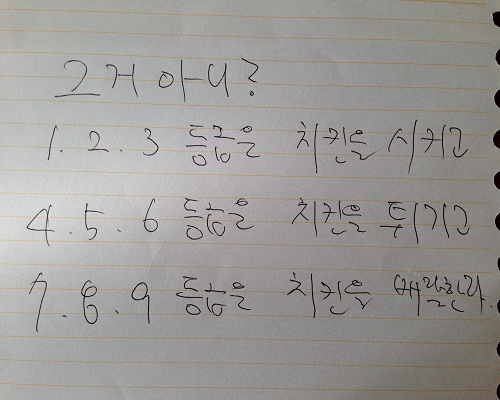 그거 아니?
1. 2. 3 등급은 치킨을 시키고
4. 5. 6 등급은 치킨을 튀기고
7. 8. 9 등급은 치킨을 배달한다.